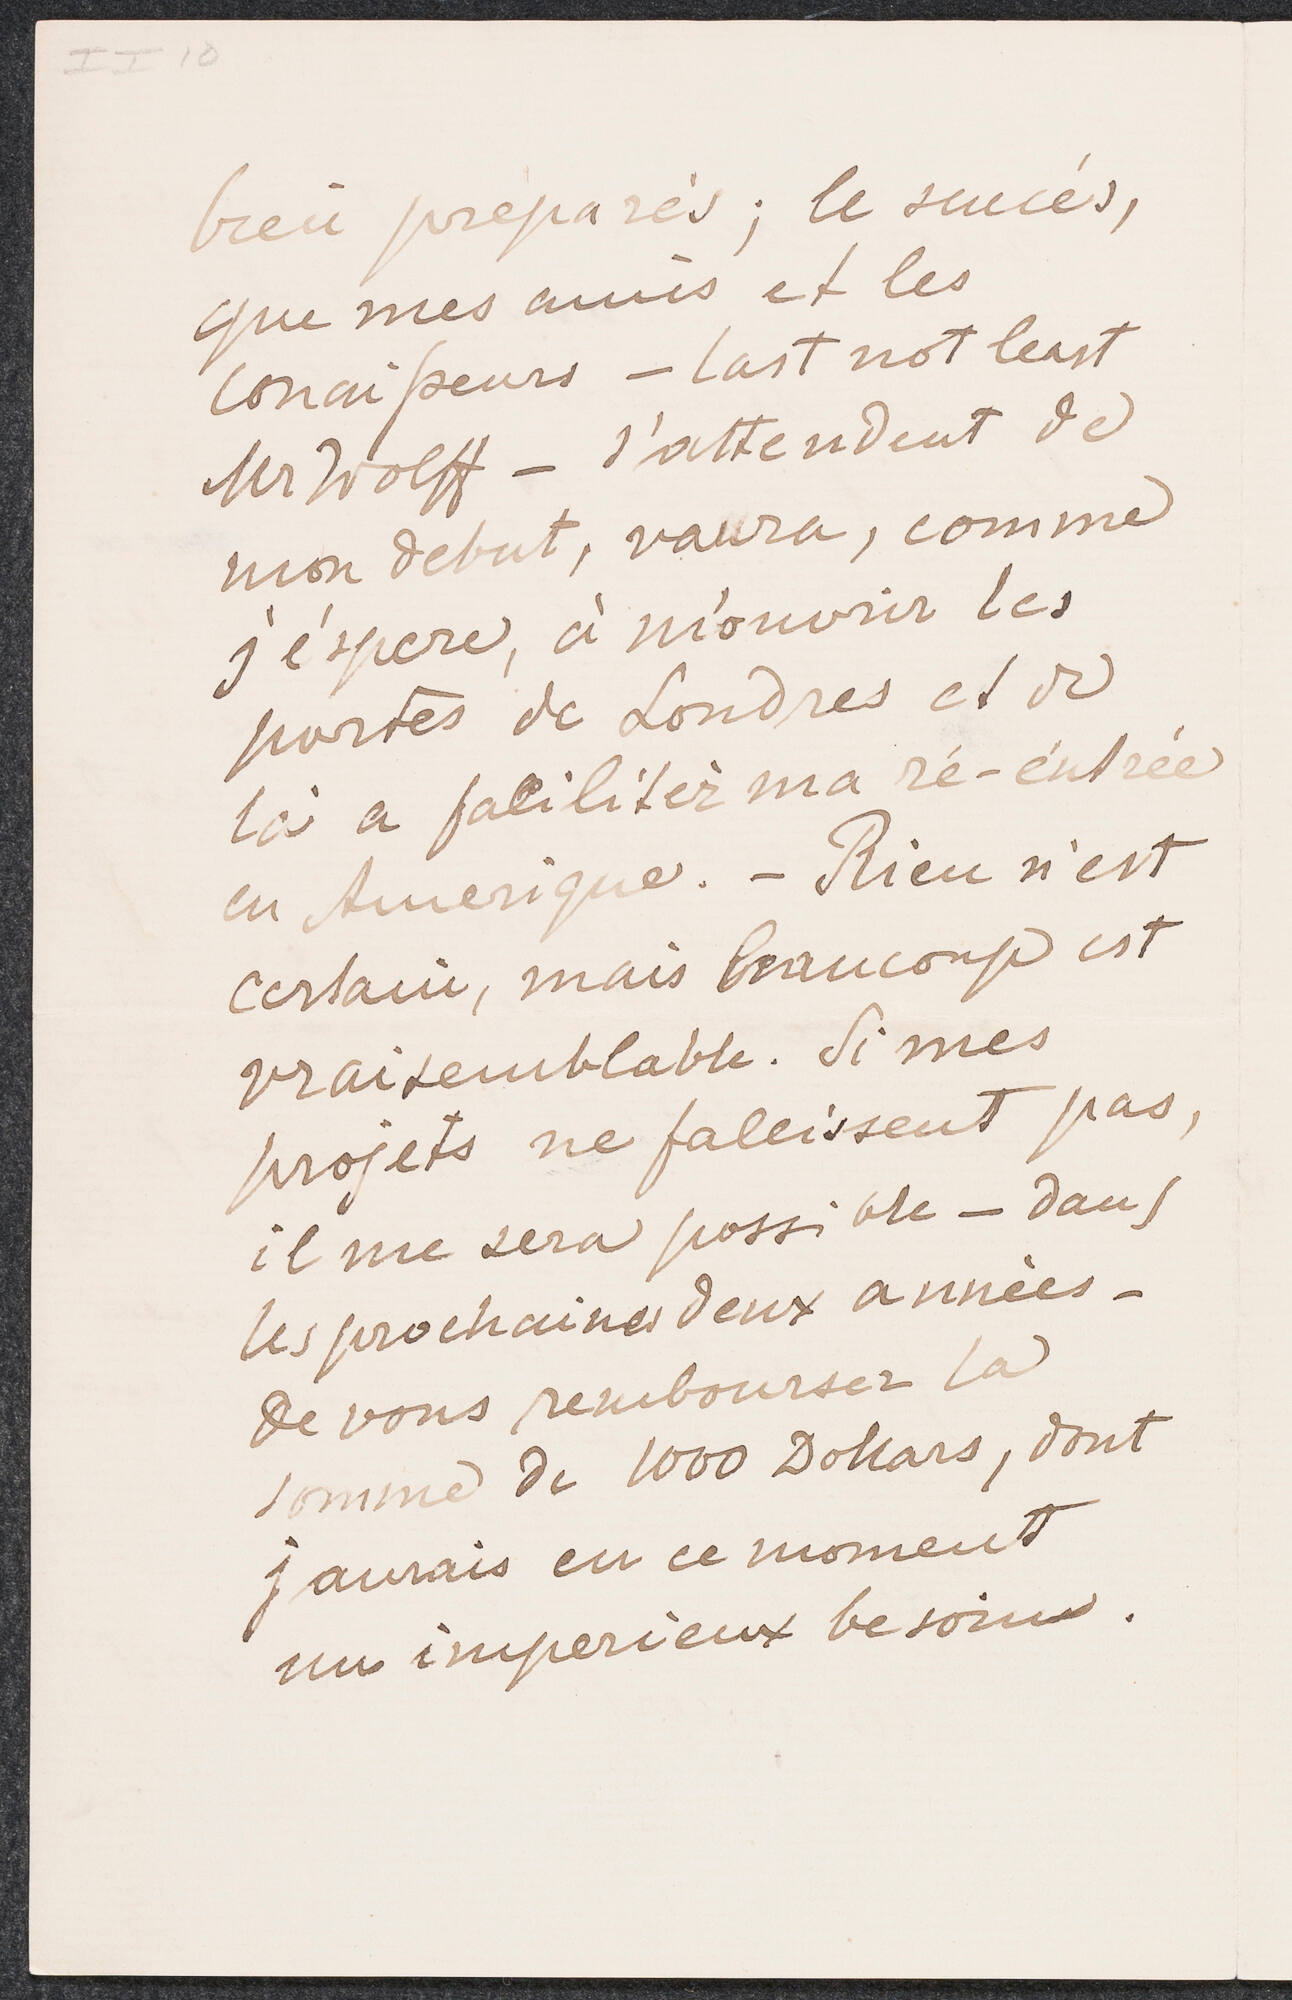 II 10
bien préparés; le succés,
que mes amis et les
conaisseurs – last not least
Mr Wolff – s'attendent de
mon debut, vaura, comme
j'éspere, à m'ouvrir les
portes de Londres et de
là a faciliter ma ré-éntrée
en Amerique. – Rien n'est
certain, mais beaucoup est
vraisemblable. Si mes
projets ne faleissent pas,
il me sera possible – dans
les prochaines deux années –
de vous rembourser la
somme de 1000 Dollars, dont
j'aurais en ce moment
un imperieux besoin.